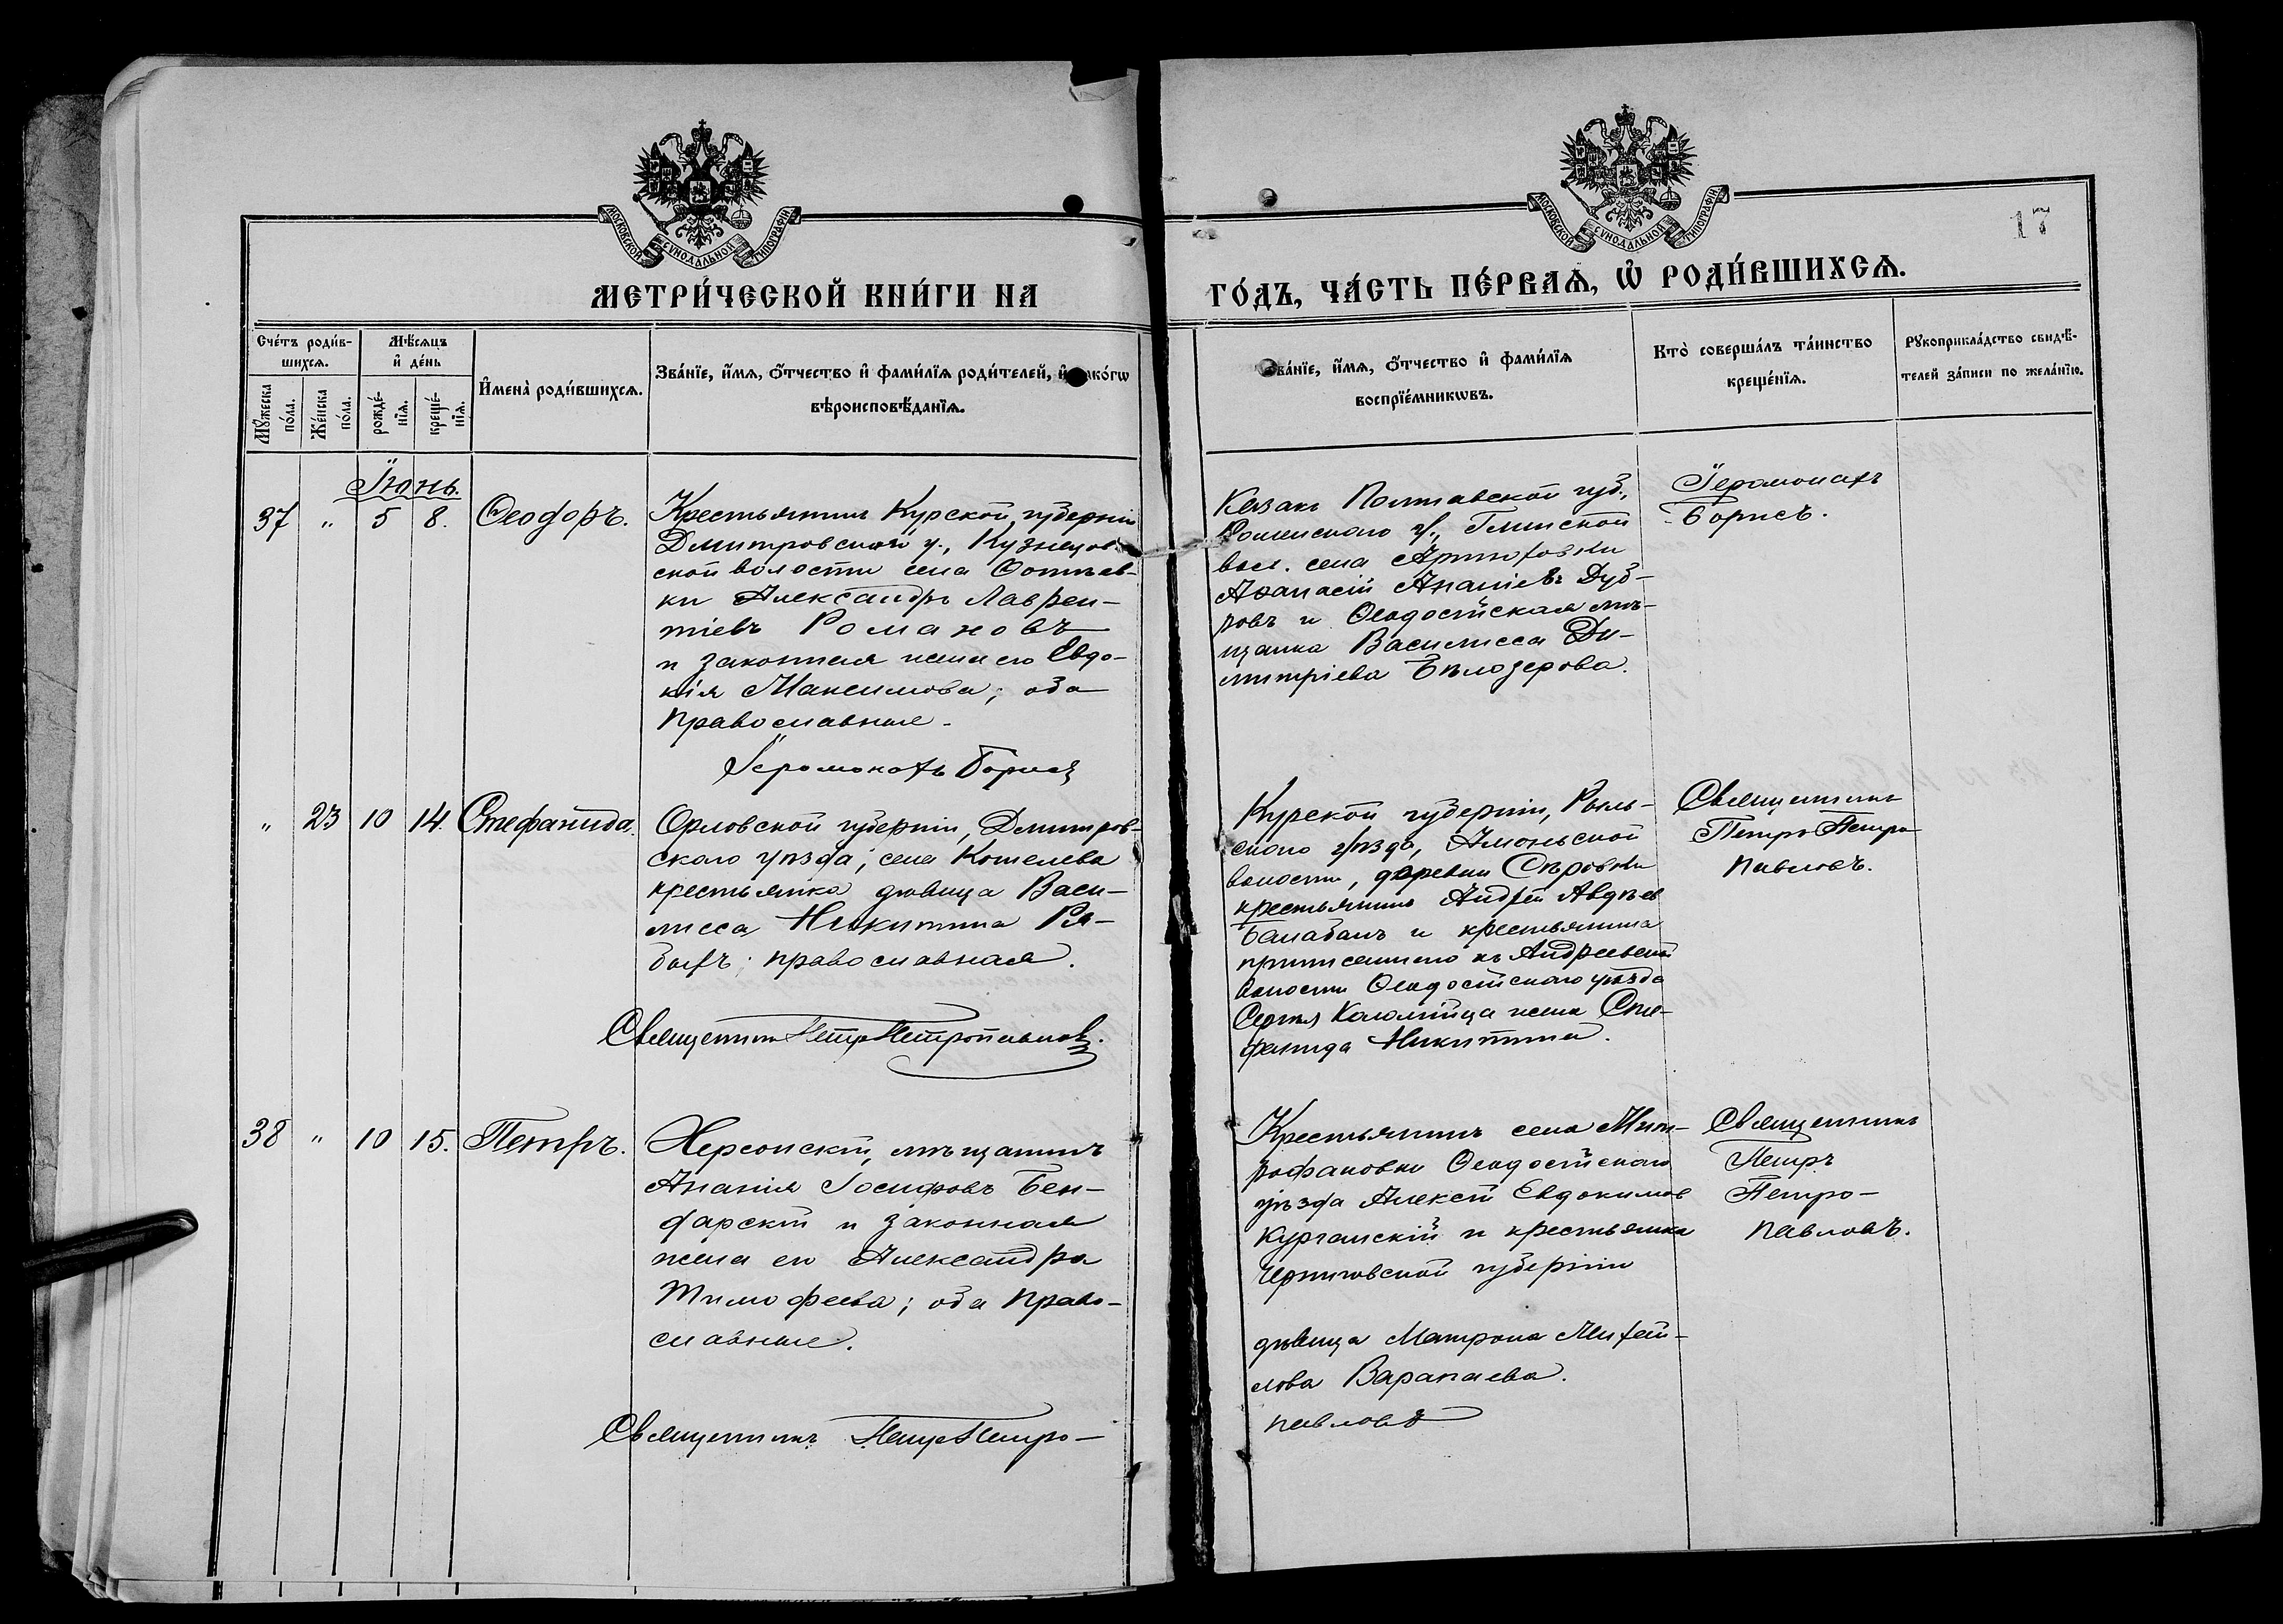 МОСКОВСКОЙ СѴНОДАЛЬНОЙ ТИПОГРАФІИ
МОСКОВСКОЙ СѴНОДАЛЬНОЙ ТИПОГРАФІИ
17
МЕТРИ́ЧЕСКОЙ КНИ́ГИ НА
ГО́ДЪ, ЧА́СТЬ ПЕ́РВАѦ, Ѡ҆ РОДИ́ВШИХСѦ.
Сче́тъ роди́в-
шихсѧ.
Мꙋ́жеска по́ла.
Же́нска по́ла.
Мѣ́сѧцъ
и҆ де́нь
рожде́-нїѧ.
креще́-нїѧ.
И҆мена̀ роди́вшихсѧ.
Зва́нїе, и҆́мѧ, ѻ҆́тчество и҆ фами́лїѧ роди́телей, и҆ ко́гѡ
вѣроисповѣ́данїѧ.
Зва́нїе, и҆́мѧ, ѻ҆́тчество и҆ фами́лїѧ
воспрїе́мникѡвъ.
Кто̀ соверша́лъ та́инство
креще́нїѧ.
Рꙋкоприкла́дство свидѣ́-
телей за́писи по жела́нїю.
Іюнь.
37 " 5 8. Ѳеодоръ.
Крестьянинъ Курской губерніи
Дмитровскаго у., Кузнецов-
ской волости села
ки Александръ Лаврен-
тіевъ Романовъ
и законная жена его Евдо-
кія Максимова; оба
православные.
Іеромонахъ Борисъ
Казакъ Полтавской губ.,
Роменскаго у., Глинской
вол. села Артюховки
Аѳанасій Ананіевъ Дуб-
ровъ и Ѳеодосійская мѣ-
щанка Василисса Ди-
митріева Бѣлозерова.
Іеромонахъ
Борисъ.
" 23 10 14. Стефанида.
Орловской губерніи, Дмитров-
скаго уѣзда, села Кошелева
крестьянка дѣвица Васи-
лисса Никитина Ря-
быхъ; православная.
Священникъ Петръ Петропавловъ.
Курской губерніи, Рыль-
скаго уѣзда, Амоньской
волости, деревни Сѣровки
крестьянинъ Андрей Авдѣев
Балабанъ и крестьянина
приписаннаго къ Андреевской
волости Ѳеодосійскаго уѣзда
Сергѣя Коломійца жена Сте-
фанида Никитина.
Священникъ
Петръ Петро-
павловъ.
38 " 10 15. Петръ.
Херсонскій мѣщанинъ
Ананія Іосифовъ Бен-
дарскій и законная
жена его Александра
Тимофеева; оба право-
славные.
Священникъ Петръ Петро-
Крестьянинъ села Мит-
рофановки Ѳеодосійскаго
уѣзда Алексѣй Евдокимов
Курганскій и крестьянка
Черниговской губерніи
дѣвица Матрона Михай-
лова Варапаева.
павловъ
Священникъ
Петръ
Петро-
павловъ.